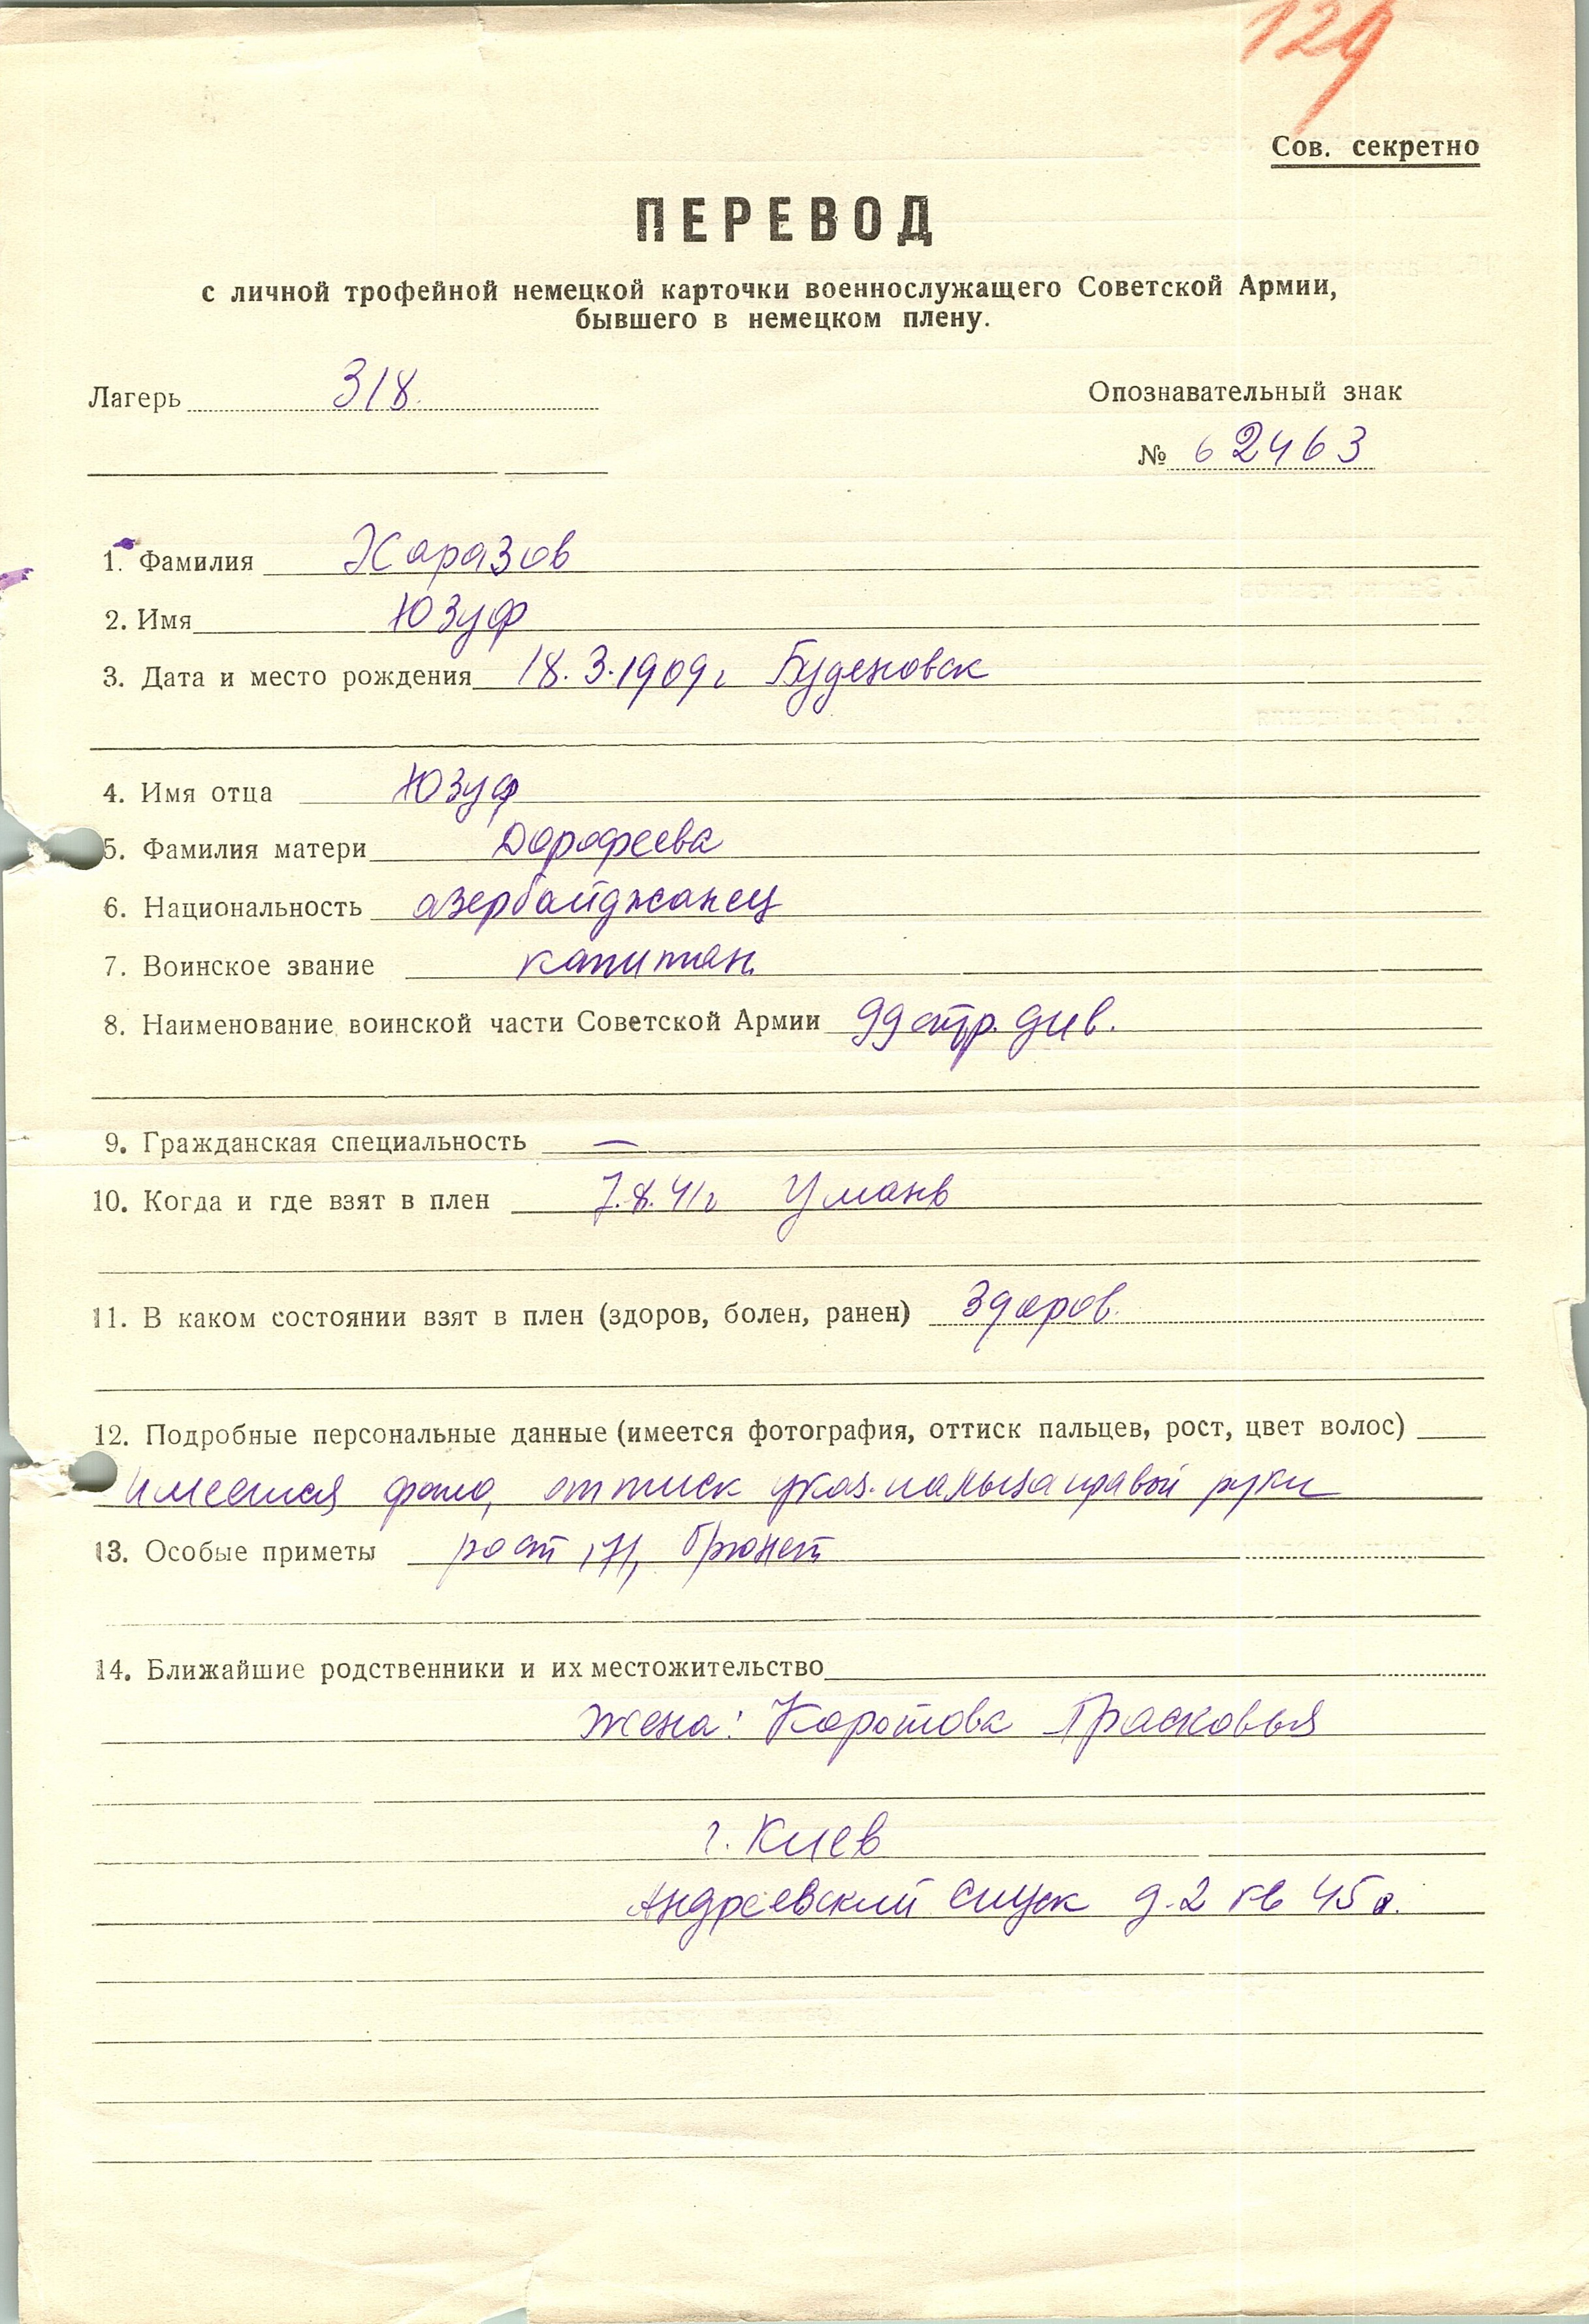 129
Сов. секретно
ПЕРЕВОД
с личной трофейной немецкой карточки военнослужащего Советской Армии,
бывшего в немецком плену.
Лагерь 318 Опознавательный знак
№ 62463
1. Фамилия Харазов
2. Имя Юзуф
3. Дата и место рождения 18.3.1909г Буденовск
4. Имя отца Юзуф
5. Фамилия матери Дорофеева
6. Национальность азербайджанец
7. Воинское звание капитан
8. Наименование воинской части Советской Армии 99 стр. див.
9. Гражданская специальность —
10. Когда и где взят в плен 7.8.41г Умань
11. В каком состоянии взят в плен (здоров, болен, ранен) Здоров.
12. Подробные персональные данные (имеется фотография, оттиск пальцев, рост, цвет волос)
имеется фото, оттиск указ. пальца правой руки
13. Особые приметы рост 171, брюнет
14. Ближайшие родственники и их местожительство
жена: Коротова Прасковья
г. Киев
Андреевский спуск д. 2 кв 45а.